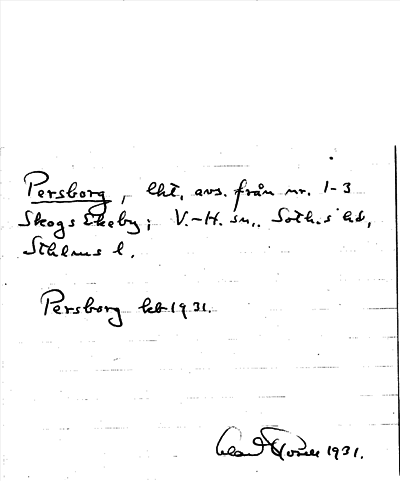 Persborg, lht, avs. från nr. 1-3
Skogs Ekeby; V.-H. sn., Soth.s hd,
Sthlms l.
Persborg kb 1931.
1931.